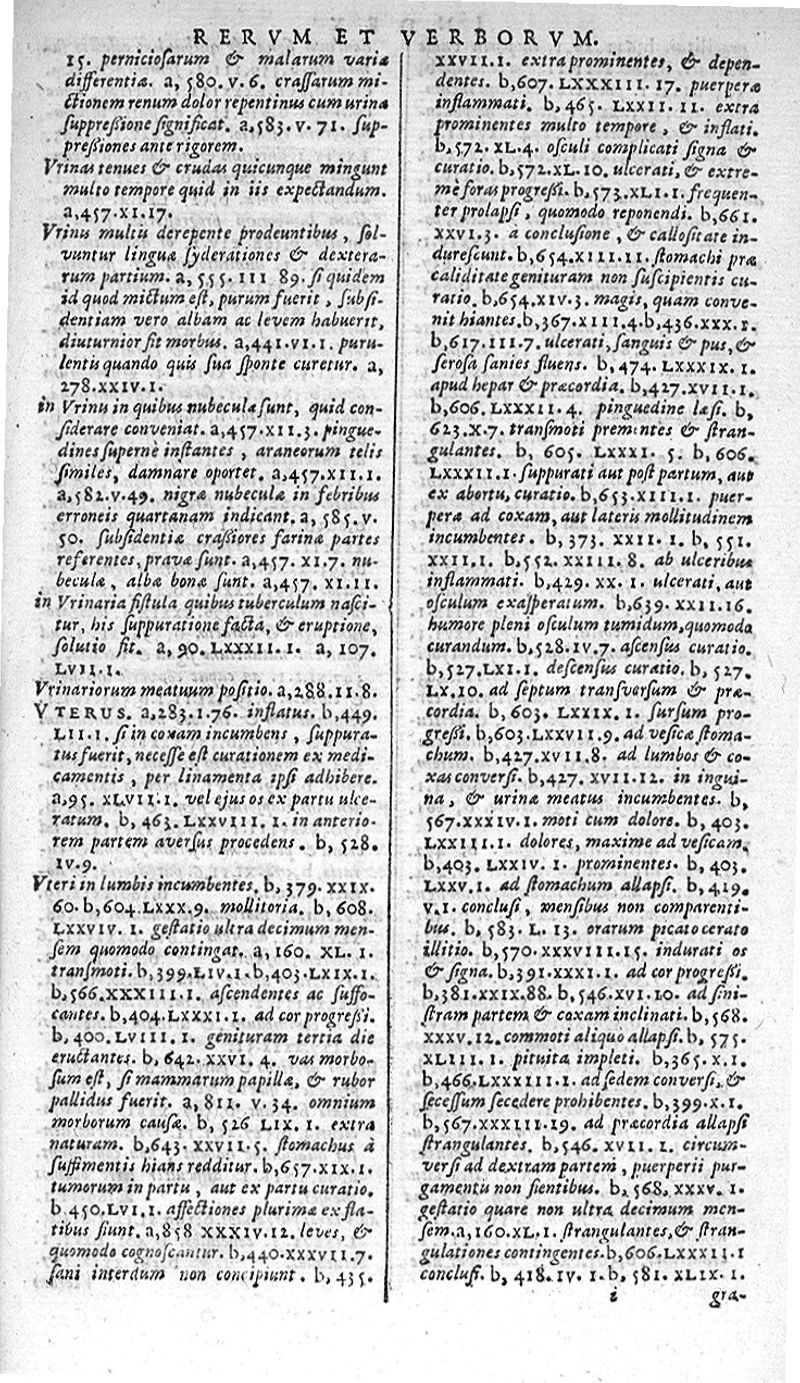 RERVM ET VERBORVM.
15. perniciosarum & malarum varia
differentia. a, 580. v. 6. crassarum mi-
ctionem renum dolor repentinus cum urina
suppressione significat. a, 583. v. 71. sup-
pressiones ante rigorem.
Vrinas tenues & crudas quicunque mingunt
multo tempore quid in iis expectandum.
a, 457. XI. 17.
Vrinis multis derepente prodeuntibus, sol-
vuntur linguæ syderationes & dextera-
rum partium. a, 555. III 89. si quidem
id quod mictum est, purum fuerit, subsi-
dentiam vero albam ac levem habuerit,
diuturnior fit morbus. a, 441. VI. I. puru-
lentis quando quis sua sponte curetur. a,
278. XXIV. I.
in Vrinis in quibus nubeculæ sunt, quid con-
siderare conveniat. a, 457. XII. 3. pingue-
dines supernè instantes, araneorum telis
similes, damnare oportet. a, 457. XII. I.
a, 582. v. 49. nigræ nubeculæ in febribus
erroneis quartanam indicant. a, 585. v.
50. subsidentiæ crassiores farinæ partes
referentes, pravæ sunt. a, 457. XI. 7. nu-
beculæ, albæ bonæ sunt. a, 457. XI. II.
in Vrinaria fistula quibus tuberculum nasci-
tur, his suppuratione facta, & eruptione,
solutio fit. a, 90. LXXXII. I. a, 107.
LVII. I.
Vrinariorum meatuum positio. a, 288. II. 8.
VTERUS. a, 283. I. 76. inflatus. b, 449.
LII. I. si in coxam incumbens, suppura-
tus fuerit, necesse est curationem ex medi-
camentis, per linamenta ipsi adhibere.
a, 95. XLVII. I. vel ejus os ex partu ulce-
ratum. b, 463. LXXVIII. I. in anterio-
rem partem aversus procedens. b, 528.
IV. 9.
Vteri in lumbis incumbentes. b, 379. XXIX.
60. b, 604. LXXX. 9. mollitoria. b, 608.
LXXXIV. I. gestatio ultra decimum men-
sem quomodo contingat. a, 160. XL. I.
transmoti. b, 399. LIV. I. b, 403. LXIX. I.
b, 566. XXXIII. I. ascendentes ac suffo-
cantes. b, 404. LXXXI. I. ad cor progressi.
b, 400. LVIII. I. genituram tertia die
eructantes. b, 642. XXVI. 4. vas morbo-
sum est, si mammarum papillæ, & rubor
pallidus fuerit. a, 811. v. 34. omnium
morborum causæ. b, 526 LIX. I. extra
naturam. b, 643. XXVII. 5. stomachus à
suffimentis hians redditur. b, 657. XIX. I.
tumorum in partu, aut ex partu curatio.
b. 450. LVI. I. affectiones plurimæ ex fla-
tibus fiunt. a, 858 XXXIV. 12. leves, &
quomodo cognoscantur. b, 440. XXXVII. 7.
sani interdum non concipiunt. b, 435.
XXVII. I. extra prominentes, & depen-
dentes. b, 607. LXXXIII. 17. puerperæ
inflammati. b, 465. LXXII. II. extra
prominentes multo tempore, & inflati.
b, 572. XL. 4. osculi complicati signa &
curatio. b, 572. XL. 10. ulcerati, & extre-
mè foras progressi. b, 573. XLI. I. frequen-
ter prolapsi, quomodo reponendi. b, 661.
XXVI. 3. a conclusione, & callositate in-
durescunt. b, 654. XIII. II. stomachi præ
caliditate genituram non suscipientis cu-
ratio. b, 654. XIV. 3. magis, quam conve-
nit hiantes. b, 367. XIII. 4. b, 436. XXX. I.
b, 617. III. 7. ulcerati, sanguis & pus, &
serosa sanies fluens. b, 474. LXXXIX. I.
apud hepar & præcordia. b, 427. XVII. I.
b, 606. LXXXII. 4. pinguedine læsi. b,
623. X. 7. transmoti prementes & stran-
gulantes. b, 605. LXXXI. 5. b, 606.
LXXXII. I. suppurati aut post partum, aut
ex abortu, curatio. b, 653. XIII. I. puer-
peræ ad coxam, aut lateris mollitudinem
incumbentes. b, 373. XXII. I. b, 551.
XXII. I. b, 552. XXIII. 8. ab ulceribus
inflammati. b, 429. XX. I. ulcerati, aut
osculum exasperatum. b, 639. XXII. 16.
humore pleni osculum tumidum, quomodo
curandum. b, 528. IV. 7. ascensus curatio.
b, 527. LXI. I. descensus curatio. b, 527.
LX. 10. ad septum transversum & præ-
cordia. b, 603. LXXIX. I. sursum pro-
gressi. b, 603. LXXVII. 9. ad vesicæ stoma-
chum. b, 427. XVII. 8. ad lumbos & co-
xas conversi. b, 427. XVII. 12. in ingui-
na, & urinæ meatus incumbentes. b,
567. XXXIV. I. moti cum dolore. b, 403.
LXXIII. I. dolores, maxime ad vesicam.
b, 403. LXXIV. I. prominentes. b, 403.
LXXV. I. ad stomachum allapsi. b, 419.
V. I. conclusi, mensibus non comparenti-
bus. b, 583. L. 13. orarum picato cerato
illitio. b, 570. XXXVIII. 15. indurati os
& signa. b, 391. XXXI. I. ad cor progressi.
b, 381. XXIX. 88. b, 546. XVI. 10. ad sini-
stram partem & coxam inclinati. b, 568.
XXXV. 12. commoti aliquo allapsi. b, 575.
XLIII. I. pituita impleti. b, 365. X. I.
b, 466. LXXXIII. I. ad sedem conversi, &
secessum secedere prohibentes. b, 399. X. I.
b, 567. XXXIII. 19. ad præcordia allapsi
strangulantes. b, 546. XVII. I. circum-
versi ad dextram partem, puerperii pur-
gamentis non fientibus. b, 568. XXXV. I.
gestatio quare non ultra decimum men-
sem. a, 160. XL. I. strangulantes, & stran-
gulationes contingentes. b, 606. LXXXII. I
conclusi. b, 418. IV. I. b, 581. XLIX. I.
i gra-